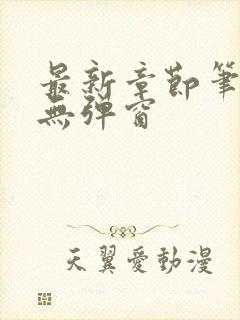 最新章節筆
無彈窗
天翼愛動漫